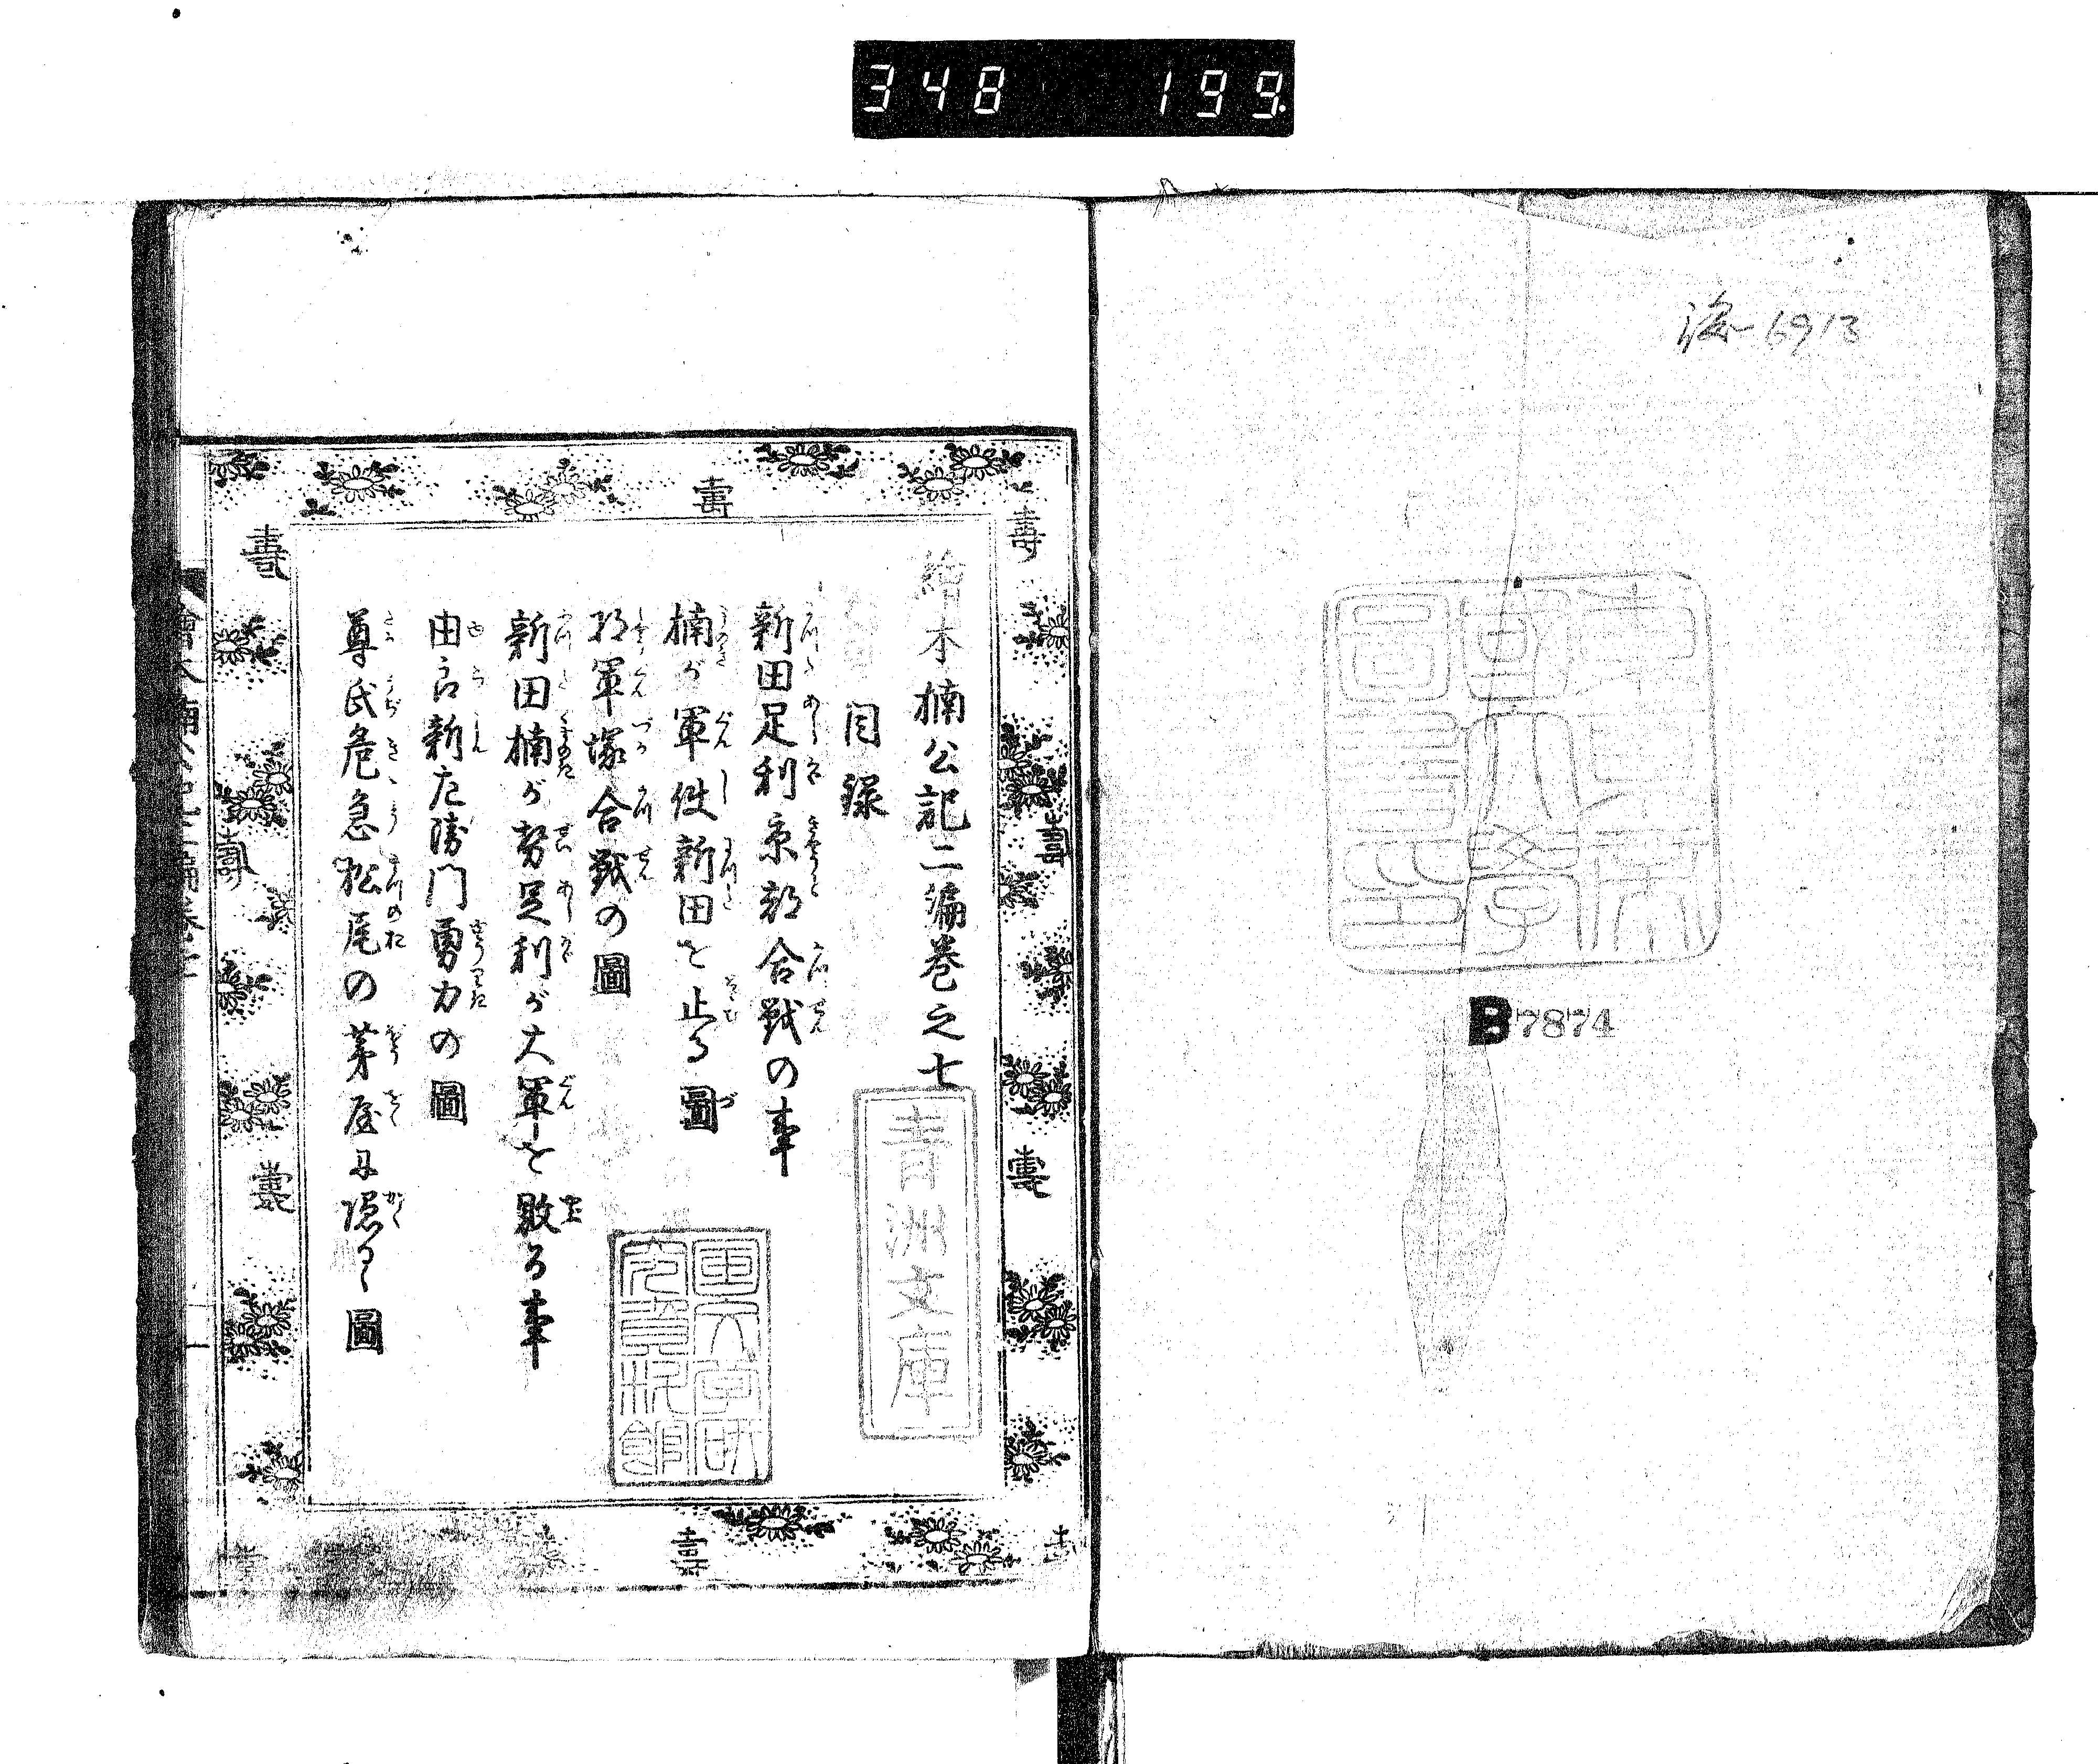 348 199.
海-6913
東京帝國大學圖書之印
B7874
絵本楠公記二編巻之七
目録
新田足利京都合戦の事
楠が軍使新田を止る圖
将軍塚合戦の圖
新田楠が勢足利が大軍を敗る事
由良新左衛門勇力の圖
尊氏危急松尾の茅屋に隠るゝ圖
青洲文庫
国文学研究資料館